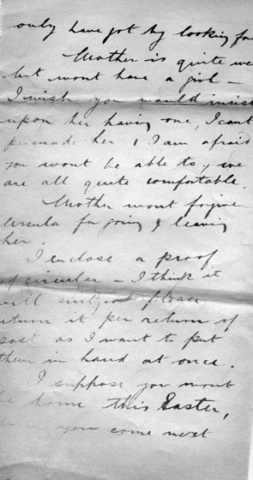 only have got by looking for
Mother is quite we
but wont have a girl –
I wish you would insist
upon her having one, I cant
persuade her & I am afraid
you wont be able to, we
are all quite comfortable.
Mother wont forgive
Ursula for going & leaving
her.
I enclose a proof
of circular – I think it
will please
return it per return of
post as I want to put
them in hand at once.
I suppose you wont
be home this Easter,
you come next